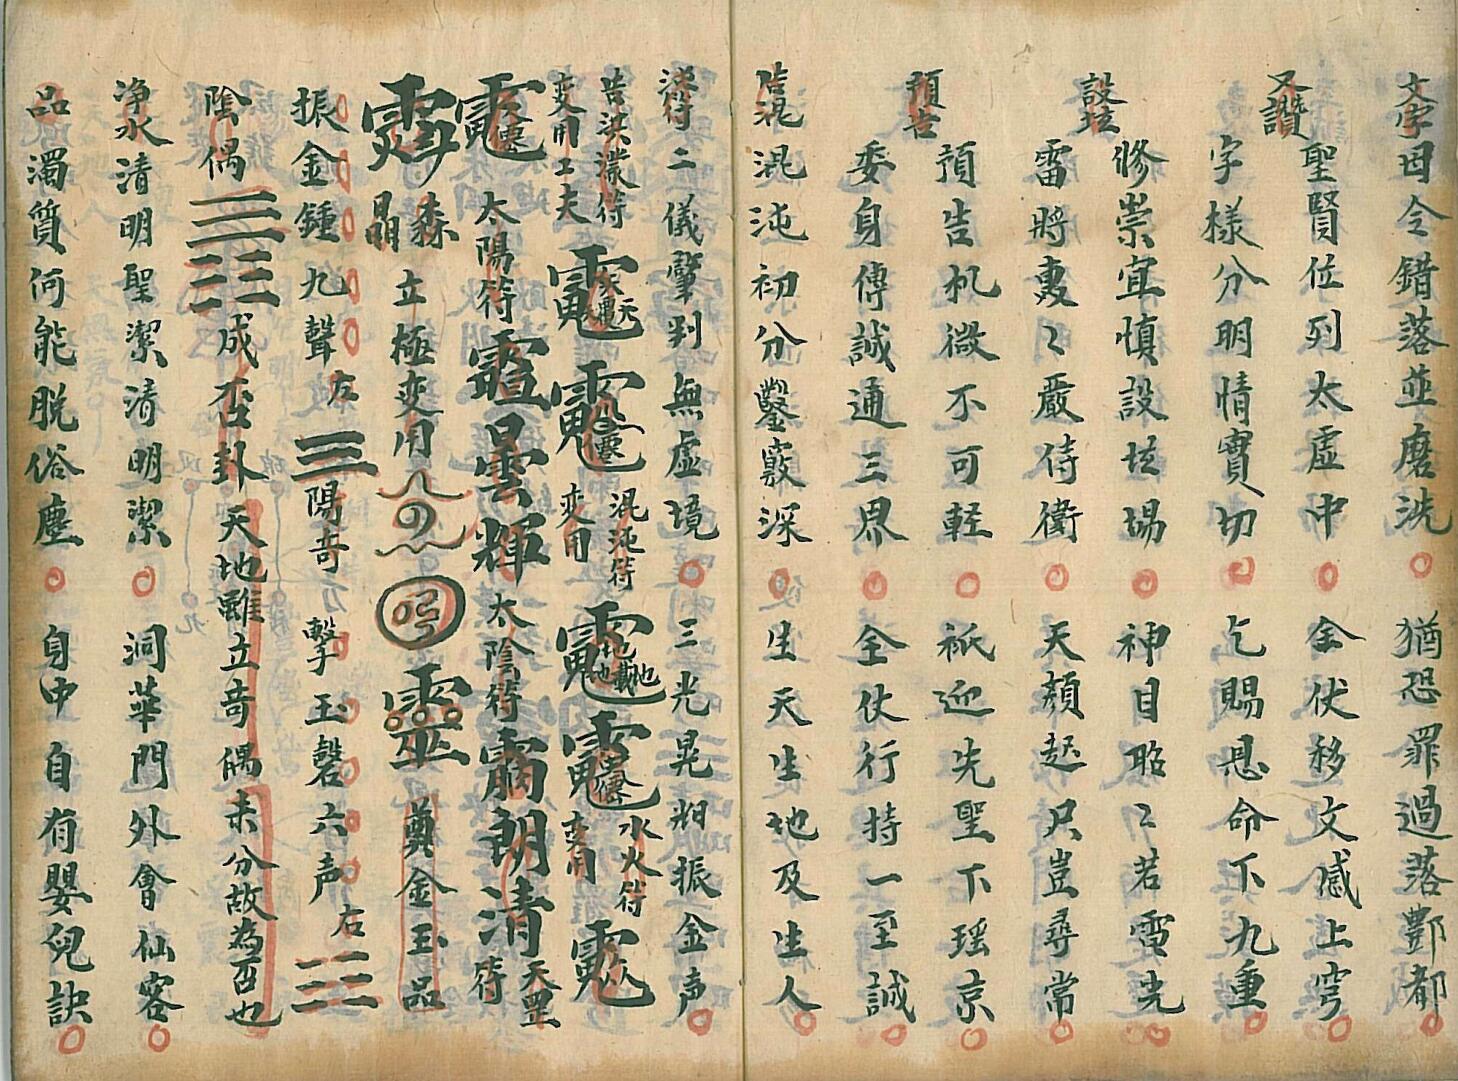 文字因令錯落並磨洗 猶恐罪過落酆都
又讚 聖賢位列太虛中 全伏移文感上穹
字樣分明情實切 乞賜恩命下九重
設坛 修崇宜慎設坛場 神目昭〻若雷光
雷將轟〻嚴侍衛 天顏起只豈尋常
預告 預告机微不可軽 祇迎先聖下瑶京
委身傳誠通三界 全仗行持一至誠
告混 混沌初分鑿竅深 生天生地及生人
洪符 二儀肇判無虛境 三光晃朗振金声
告洪濛符 混沌符 水火符
变用工夫 变用 变用
太陽符 昱雲輝 太陰符 朗清符 天罡
森晶 立極变用 靈 奠金玉品
振金鍾九聲 左 ☰ 陽奇 擊玉磬六声 右 ☷
陰偶 ☰☷ 成否卦 天地雖立奇偶未分故為否也
净水清明聖潔清明潔 洞華門外會仙客
品濁質何能脱俗塵 身中自有嬰兒訣